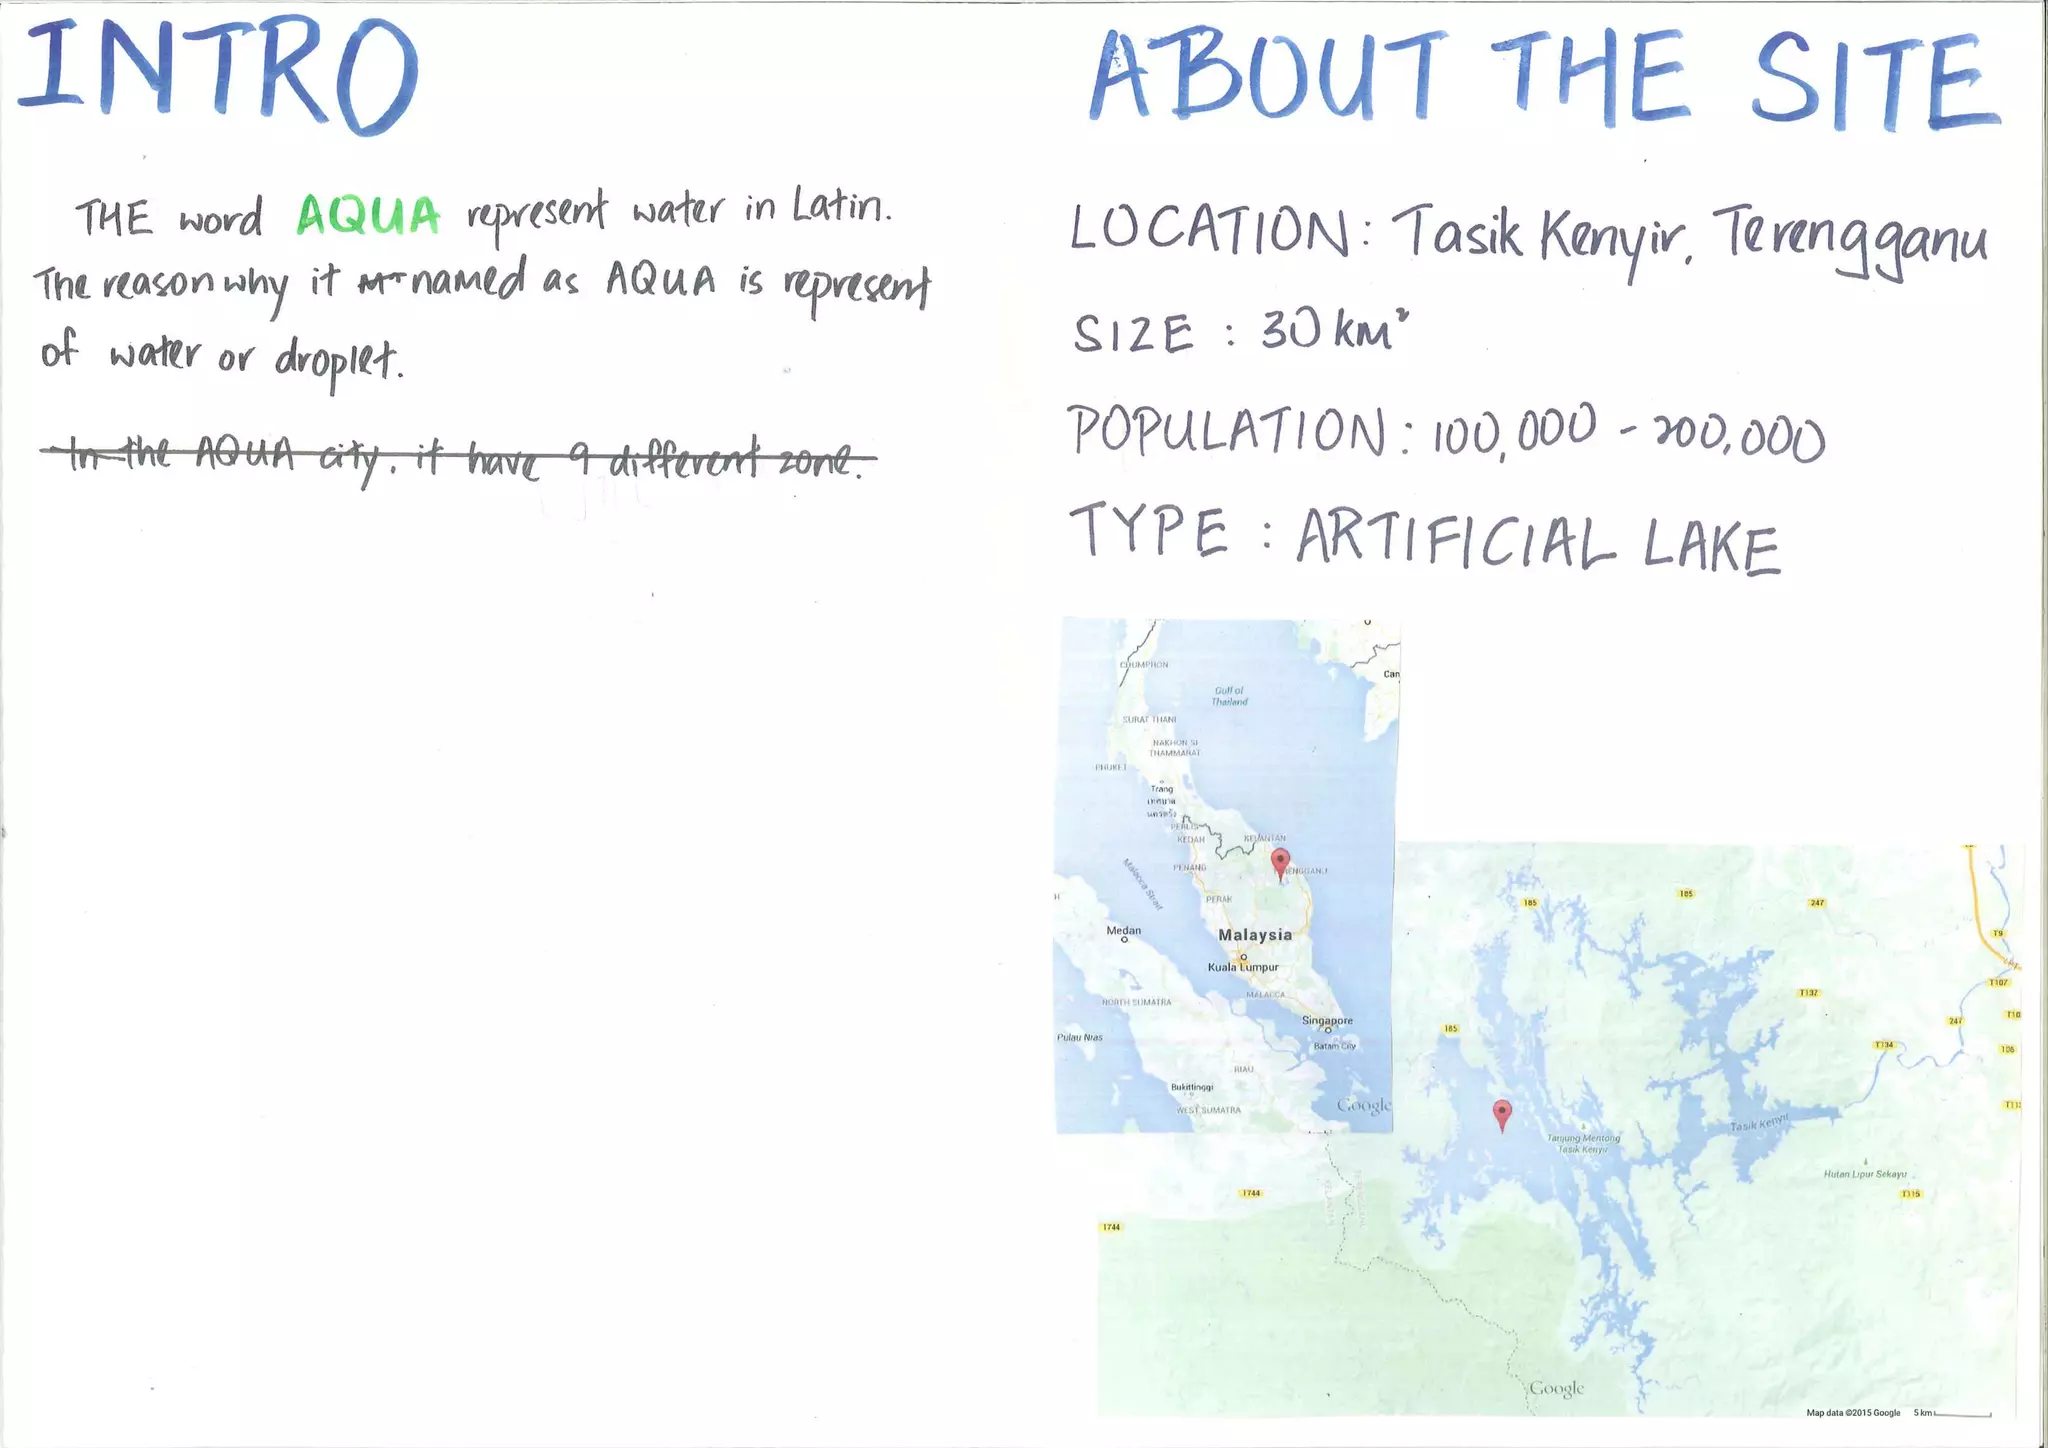 INTRO
THE word AQUA represent water in Latin.
The reason why it named as AQUA is represent
of water or droplet.
In the AQUA city, it have 9 different zone.
ABOUT THE SITE
LOCATION: Tasik Kenyir, Terengganu
SIZE : 30 km²
POPULATION: 100,000 - 200,000
TYPE : ARTIFICIAL LAKE
CHUMPHON
Can
Gulf of
Thailand
SURAT THANI
NAKHON SI
THAMMARAT
PHUKET
Trang
PERLIS
KEDAH
KELANTAN
PENANG
TERENGGANU
Malacca Strait
PERAK
Medan
Malaysia
Kuala Lumpur
MALACCA
NORTH SUMATRA
Singapore
Batam City
Pulau Nias
RIAU
Bukittinggi
WEST SUMATRA
Google
185
185
247
T9
T137
T107
185
247
T10
T134
106
Tasik Kenyir
Tanjung Mentong
Tasik Kenyir
Hutan Lipur Sekayu
T115
1744
1744
KELANTAN
TERENGGANU
Google
Map data ©2015 Google 5 km